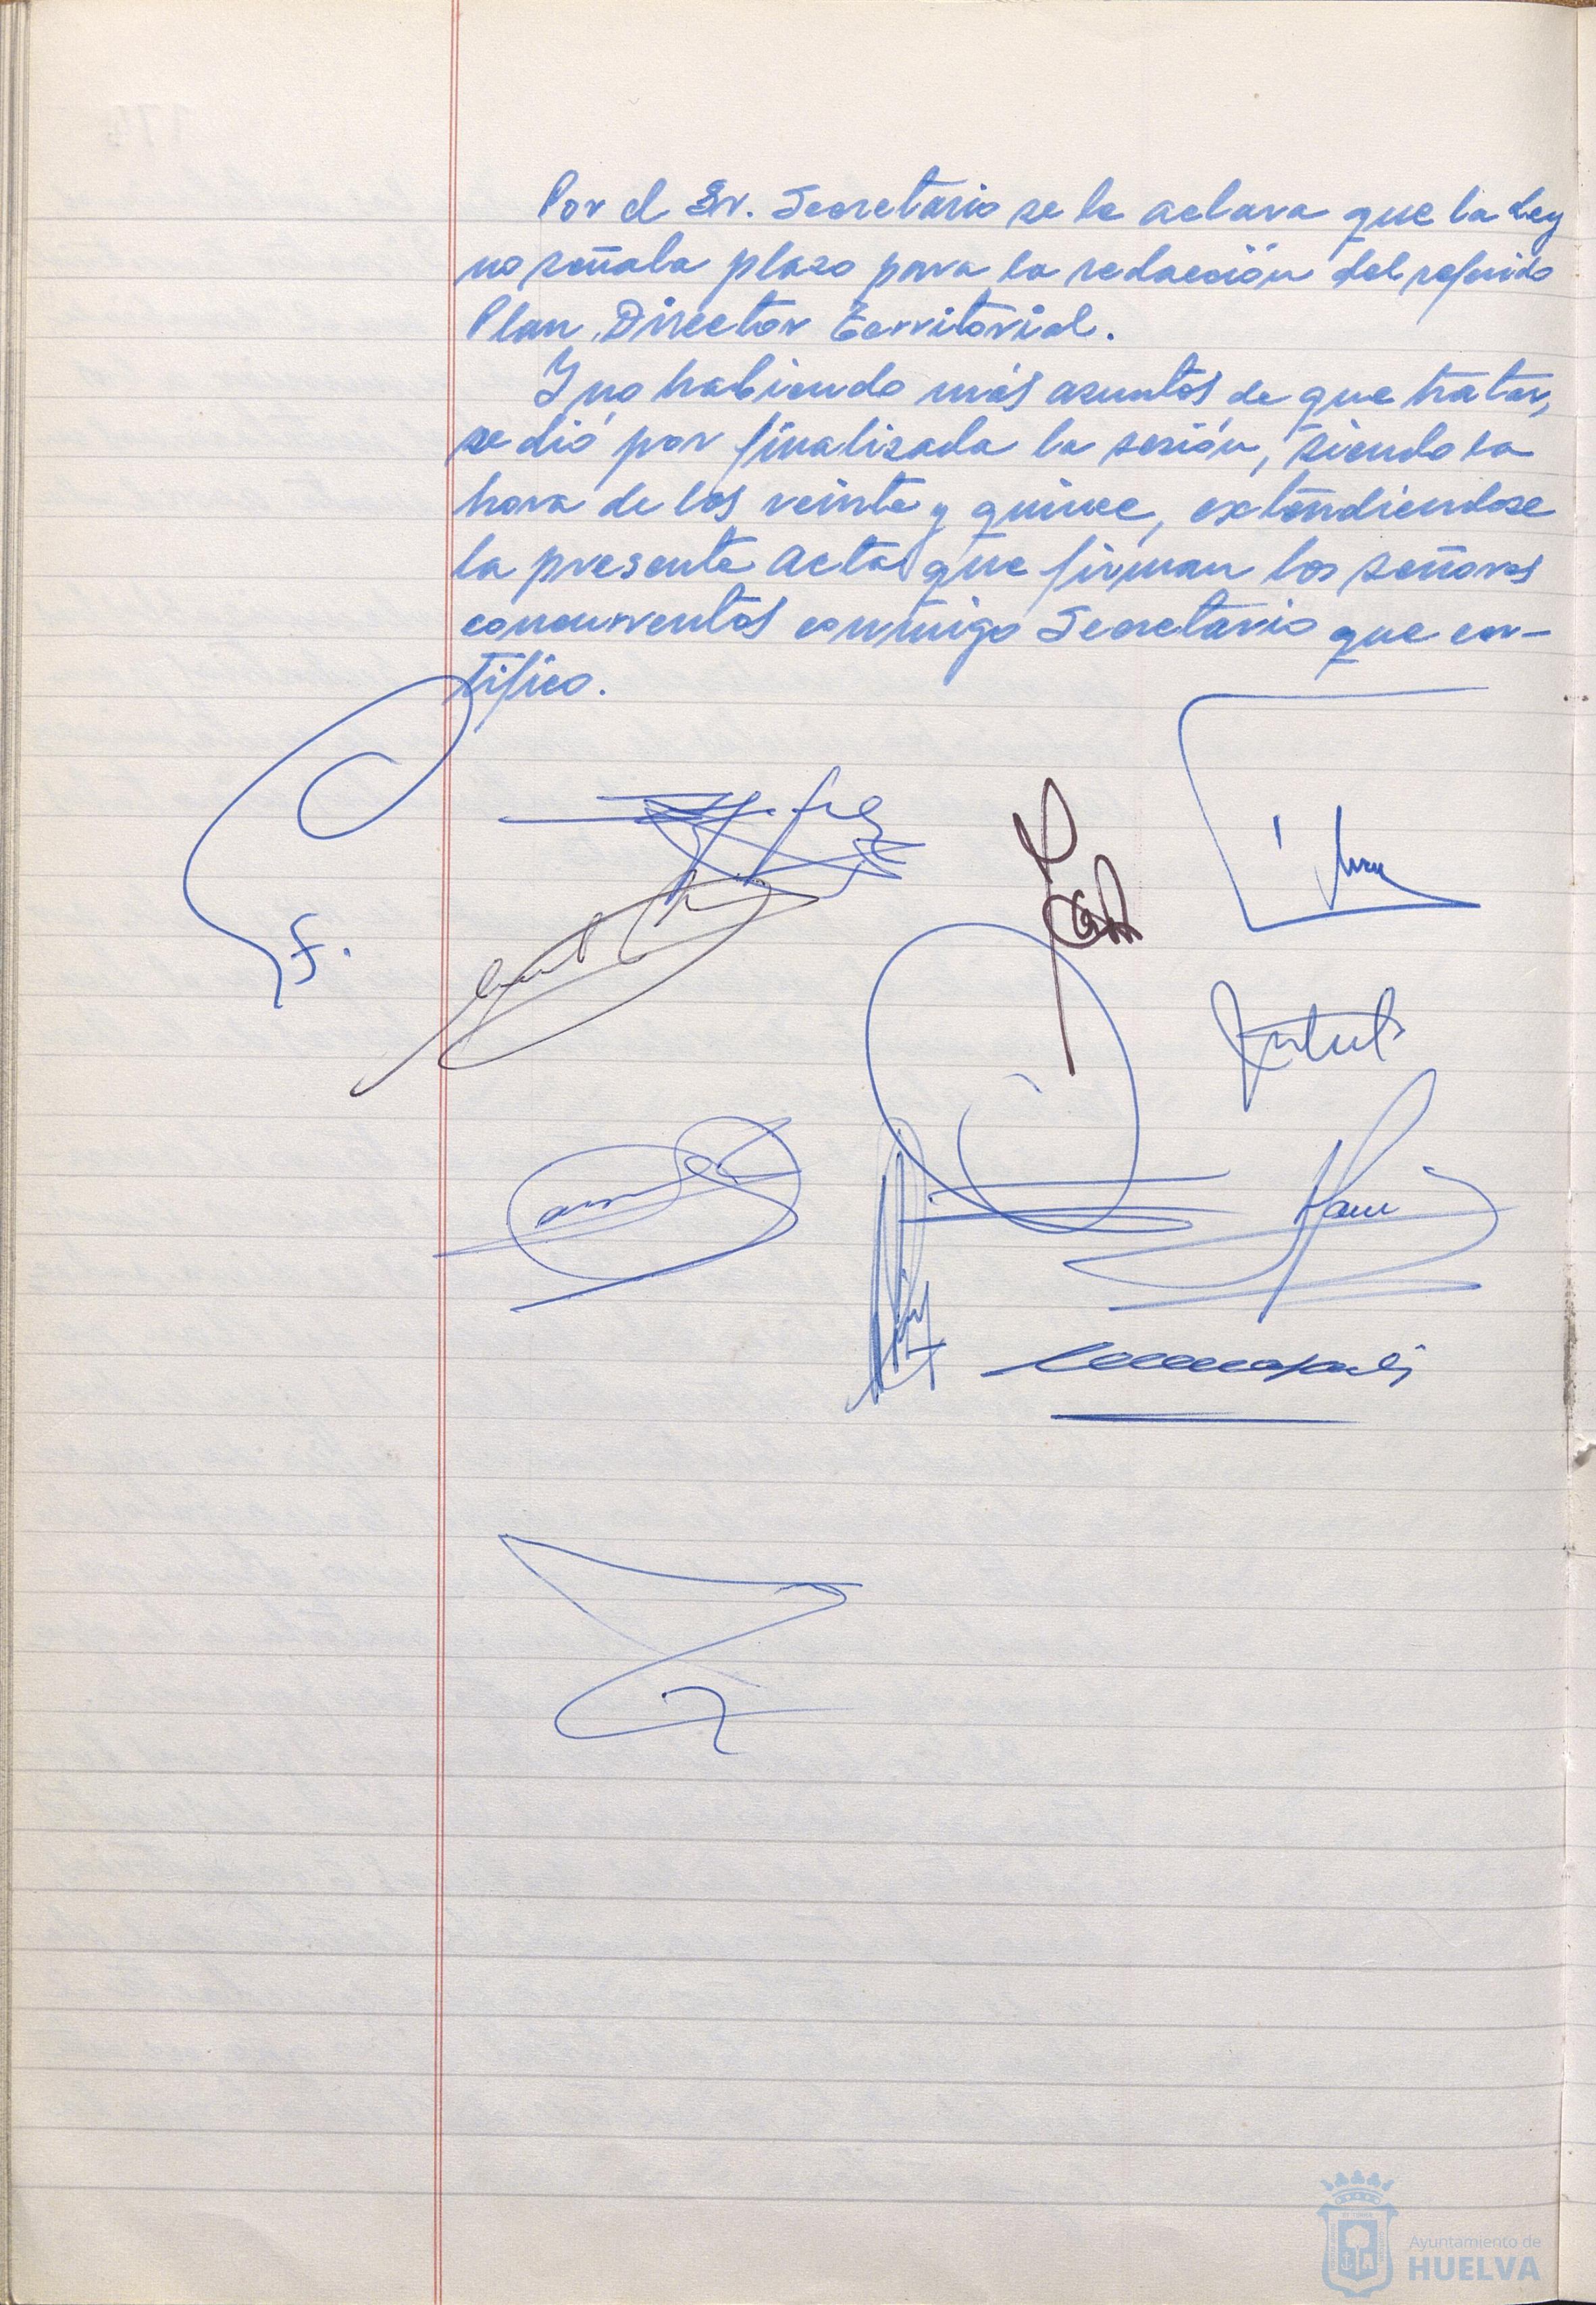 Por el Sr. Secretario se le aclara que la Ley
no señala plazo para la redacción del referido
Plan Director Territorial.
Y no habiendo más asuntos de que tratar,
se dió por finalizada la sesión, siendo la
hora de las veinte y quince, extendiendose
la presente acta que firman los señores
concurrentes conmigo Secretario que cer-
tifico.
Ayuntamiento de
HUELVA